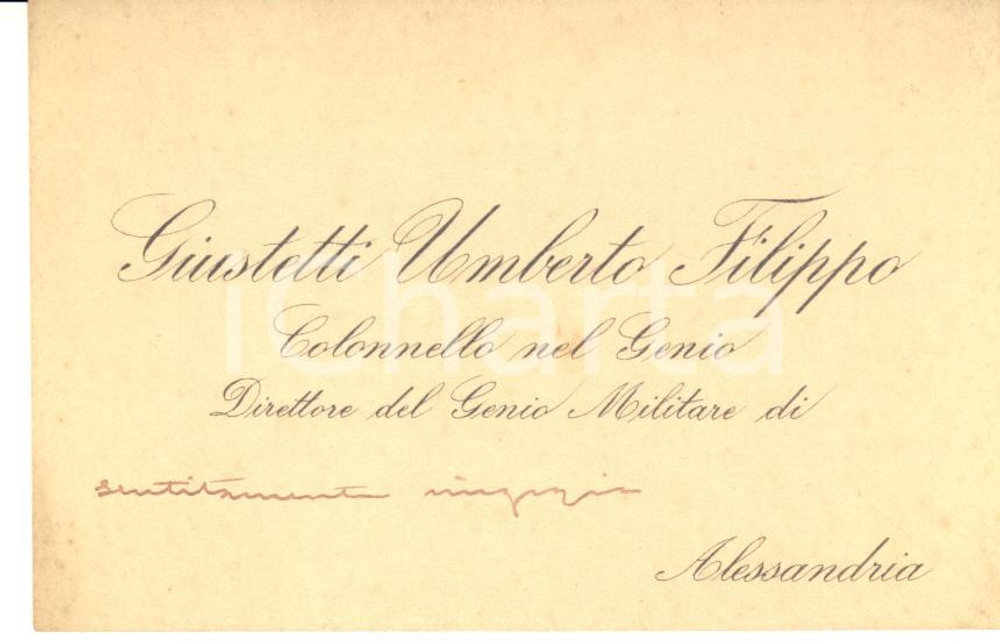 Giustetti Umberto Filippo
Colonnello nel Genio
Direttore del Genio Militare di
sentitamente ringrazia
Alessandria
iCharta